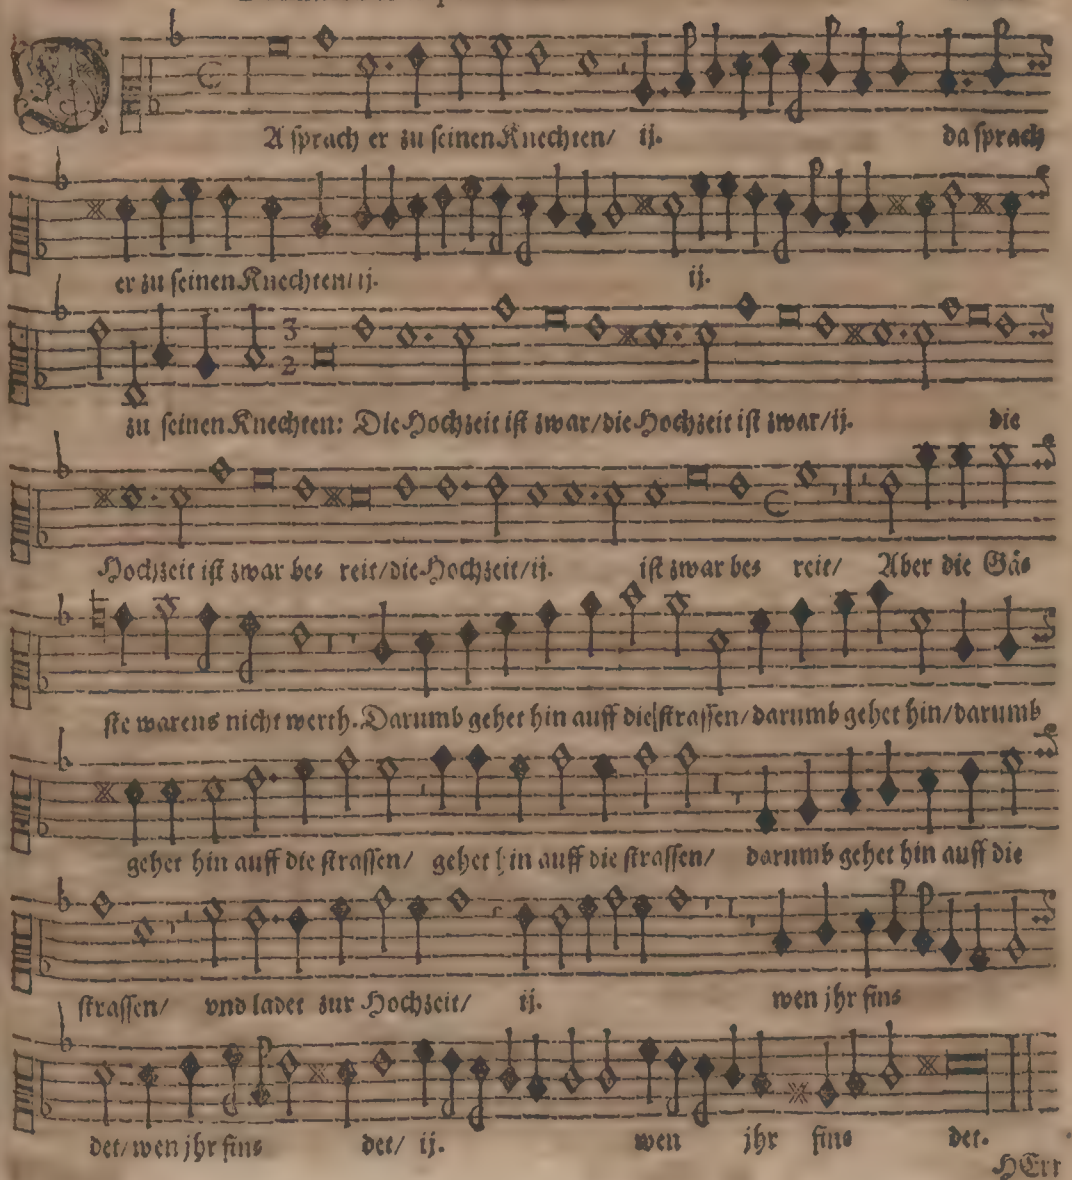 DA sprach er zu seinen Knechten/ ij. da sprach
er zu seinen Knechten/ ij. ij.
zu seinen Knechten: Die Hochzeit ist zwar/ die Hochzeit ist zwar/ ij. die
Hochzeit ist zwar bes reit/ die Hochzeit/ ij. ist zwar bes reit/ Aber die Gäs
ste warens nicht werth. Darumb gehet hin auff die strassen/ darumb gehet hin/ darumb
gehet hin auff die strassen/ gehet hin auff die strassen/ darumb gehet hin auff die
strassen/ vnd ladet zur Hochzeit/ ij. wen jhr fins
det/ wen jhr fins det/ ij. wen jhr fins det.
HErr